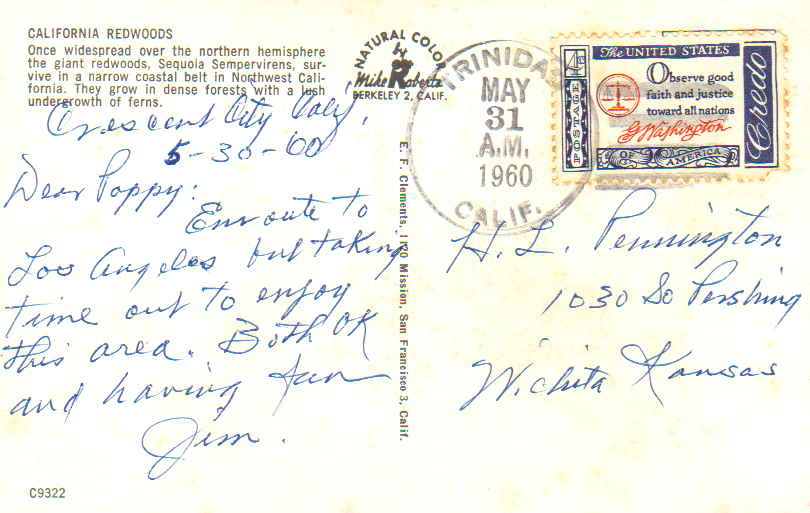 CALIFORNIA REDWOODS
Once widespread over the northern hemisphere
the giant redwoods, Sequoia Sempervirens, sur-
vive in a narrow coastal belt in Northwest Cali-
fornia. They grow in dense forests with a lush
undergrowth of ferns.
Crescent City Calif.
5-30-60
Dear Poppy:
Enroute to
Los Angeles but taking
time out to enjoy
this area. Both OK
and having fun
Jim.
C9322
NATURAL COLOR
by
Mike Roberts
BERKELEY 2, CALIF.
E. F. Clements, 1130 Mission, San Francisco 3, Calif.
TRINIDAD
MAY
31
A.M.
1960
CALIF.
4¢
POSTAGE
The UNITED STATES
Observe good
faith and justice
toward all nations
G Washington
OF
AMERICA
Credo
H. L. Pennington
1030 So Pershing
Wichita Kansas